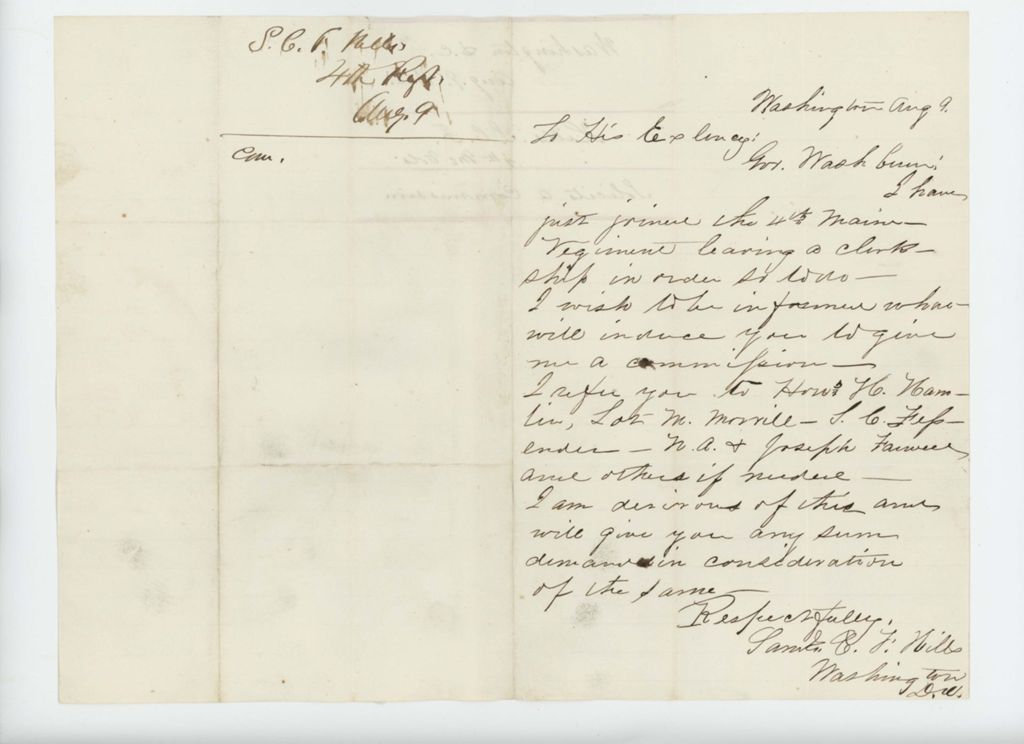 S. C. F. Hills
4th Regt.
Aug. 9
Com.
Washington Aug 9.
To His Exlency:
Gov. Washburn;
I have
just joined the 4th Maine
Regiment leaving a clerk-
ship in order so to do —
I wish to be informed what
will induce you to give
me a commission —
I refer you to Hons H. Ham-
lin, Lot M. Morrill — S. C. Fess-
enden — N. A. & Joseph Farwell
and others if needed —
I am desirous of this and
will give you any sum
demanded in consideration
of the same —
Respectfully,
Saml. C. F. Hills
Washington
D.C.